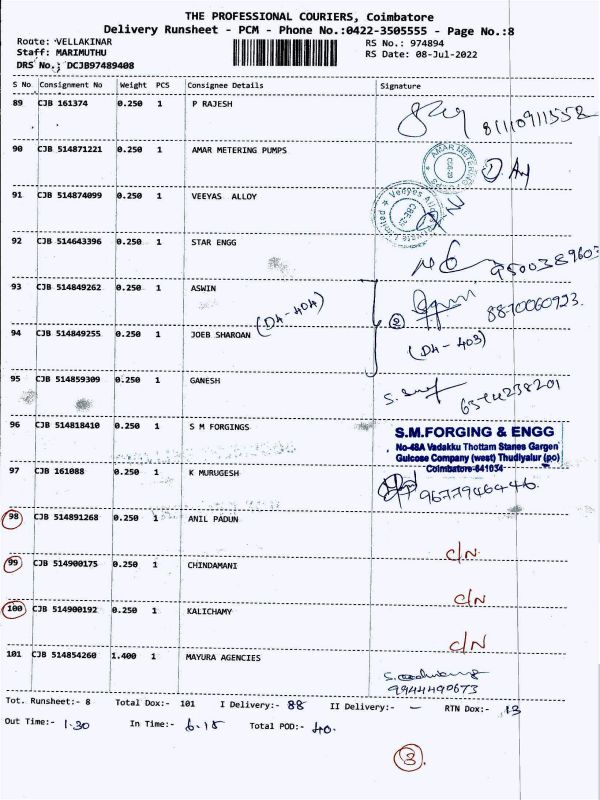 THE PROFESSIONAL COURIERS, Coimbatore
Delivery Runsheet - PCM - Phone No.:0422-3505555 - Page No.:8
Route: VELLAKINAR
Staff: MARIMUTHU
DRS No.: DCJB97489408
RS No.: 974894
RS Date: 08-Jul-2022
S No Consignment No Weight PCS Consignee Details Signature
89 CJB 161374 0.250 1 P RAJESH
81110911558
90 CJB 514871221 0.250 1 AMAR METERING PUMPS
AMAR METERING
91 CJB 514874099 0.250 1 VEEYAS ALLOY
92 CJB 514643396 0.250 1 STAR ENGG
9500389603
93 CJB 514849262 0.250 1 ASWIN
(DA-404)
8870060923.
94 CJB 514849255 0.250 1 JOEB SHAROAN
(DA-403)
95 CJB 514859309 0.250 1 GANESH
96 CJB 514818410 0.250 1 S M FORGINGS
S.M.FORGING & ENGG
No-48A Vadakku Thottam Stanes Gargen
Gulcose Company (west) Thudiyalur (po)
Coimbatore-641034
97 CJB 161088 0.250 1 K MURUGESH
9577946446.
98 CJB 514891268 0.250 1 ANIL PADUN
C/N
99 CJB 514900175 0.250 1 CHINDAMANI
C/N
100 CJB 514900192 0.250 1 KALICHAMY
C/N
101 CJB 514854260 1.400 1 MAYURA AGENCIES
9944490673
Tot. Runsheet:- 8 Total Dox:- 101 I Delivery:- 88 II Delivery:- - RTN Dox:- 13
Out Time:- 1.30 In Time:- 6.15 Total POD:- 40.
3.